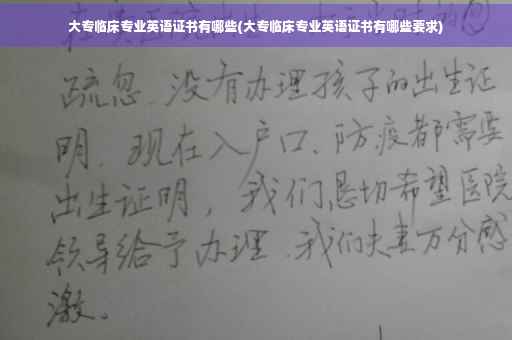 大专临床专业英语证书有哪些(大专临床专业英语证书有哪些要求)
疏忽、没有办理孩子的出生证
明、现在入户口、防疫都需要
出生证明，我们恳切希望医院
领导给予办理、我们夫妻万分感
激。